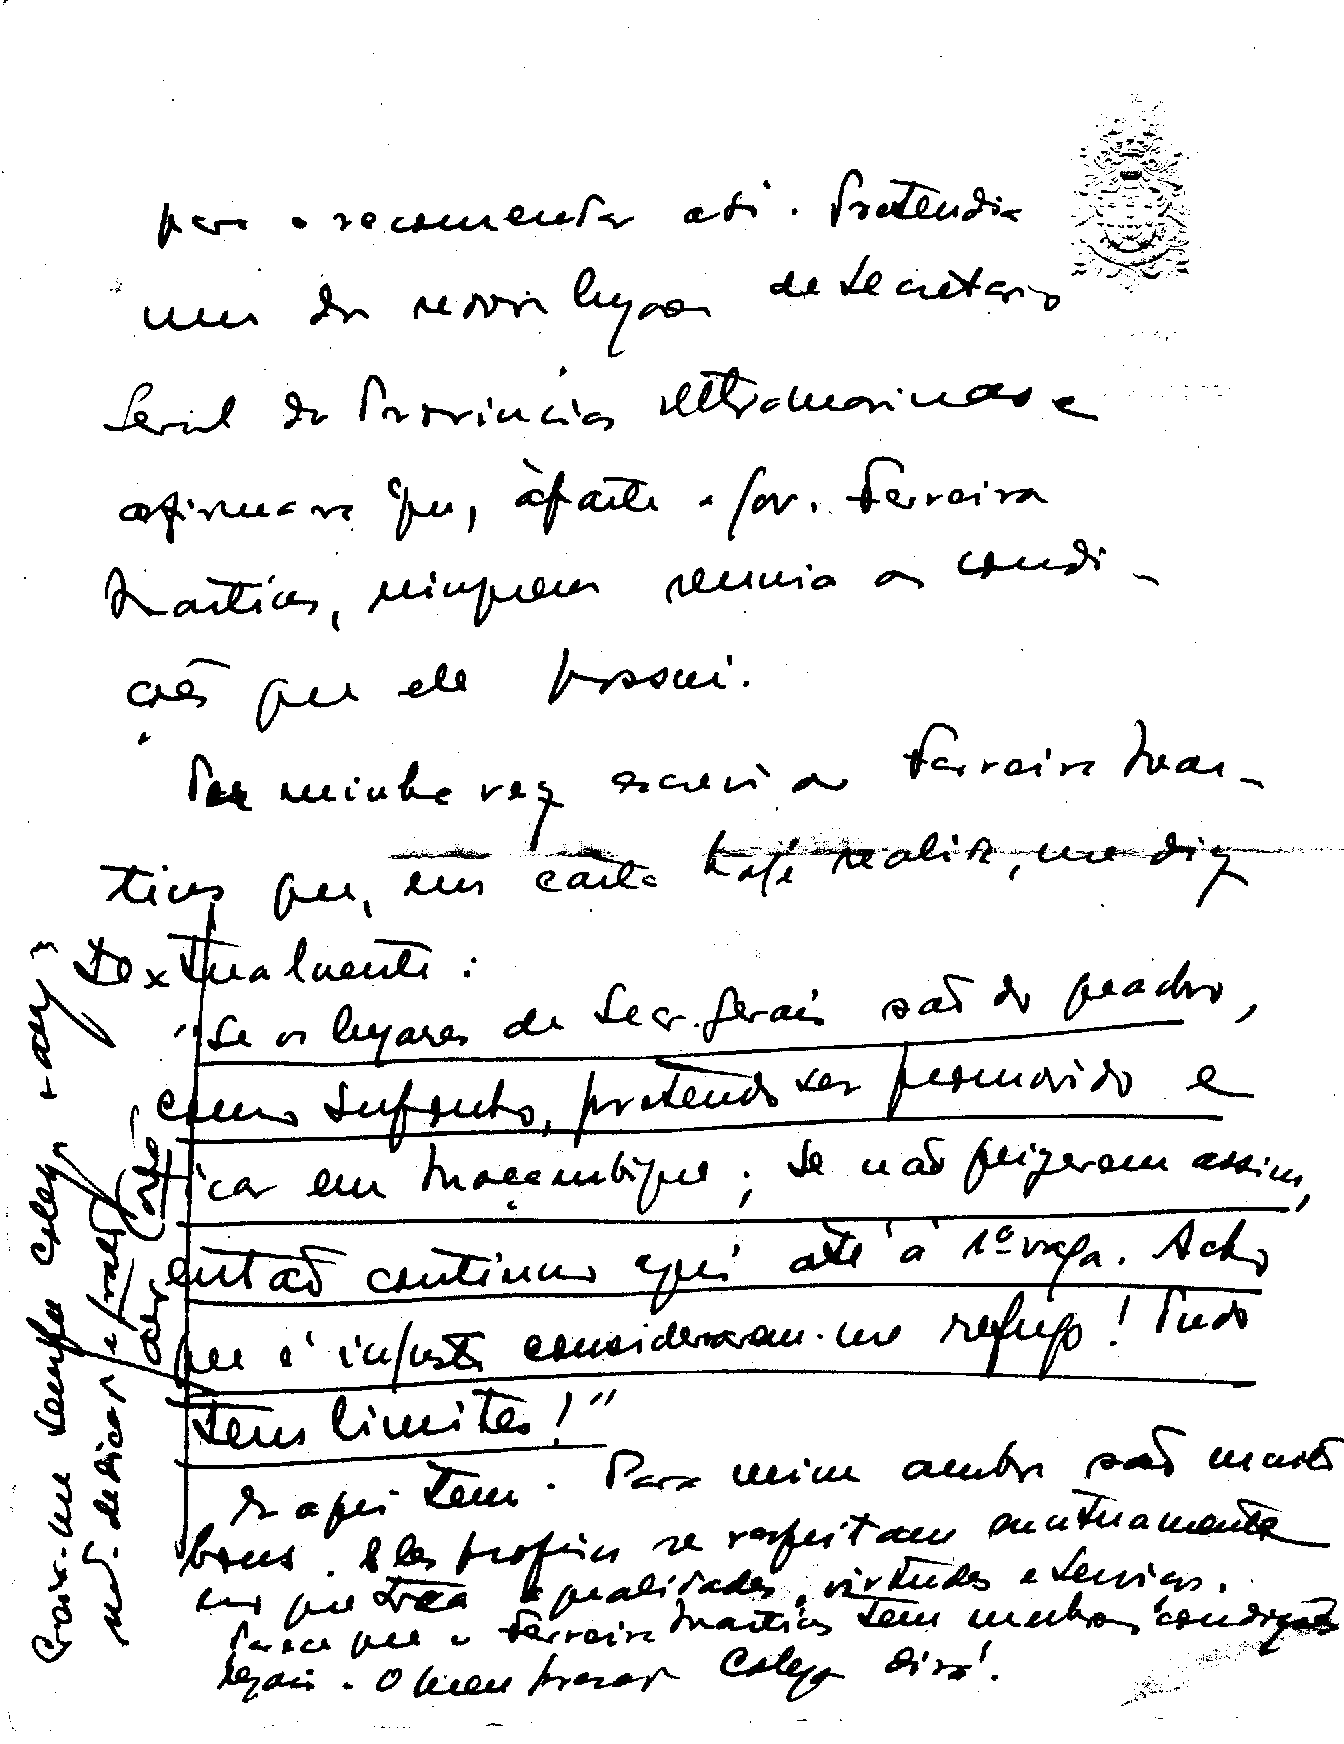 para o recomendar a si. Pretendia
um dos novos lugares de Secretario
Geral das Provincias Ultramarinas e
afirmava que, àparte o Gov. Ferreira
Martins, ninguem reunia as condi-
ções que ele possui.
Por minha vez escrevi ao Ferreira Mar-
tins que, em carta hoje recebida, me diz
textualmente:
"Se os lugares de Secr. Gerais são do quadro,
como suponho, pretendo ser promovido e
ficar em Moçambique; se não quizerem assim,
então continuo aqui até á 1ª vaga. Acho
que é injusto considerarem-me refugo! Tudo
tem limites!"
E aqui tem. Para mim ambos são muito
bons. Eles proprios se respeitam mutuamente
em que toca a qualidades, virtudes e serviços.
Parece que o Ferreira Martins tem melhores condições
legais. O meu prezado Colega dirá.
Creia-me sempre Colega
mt. dedicado e grato